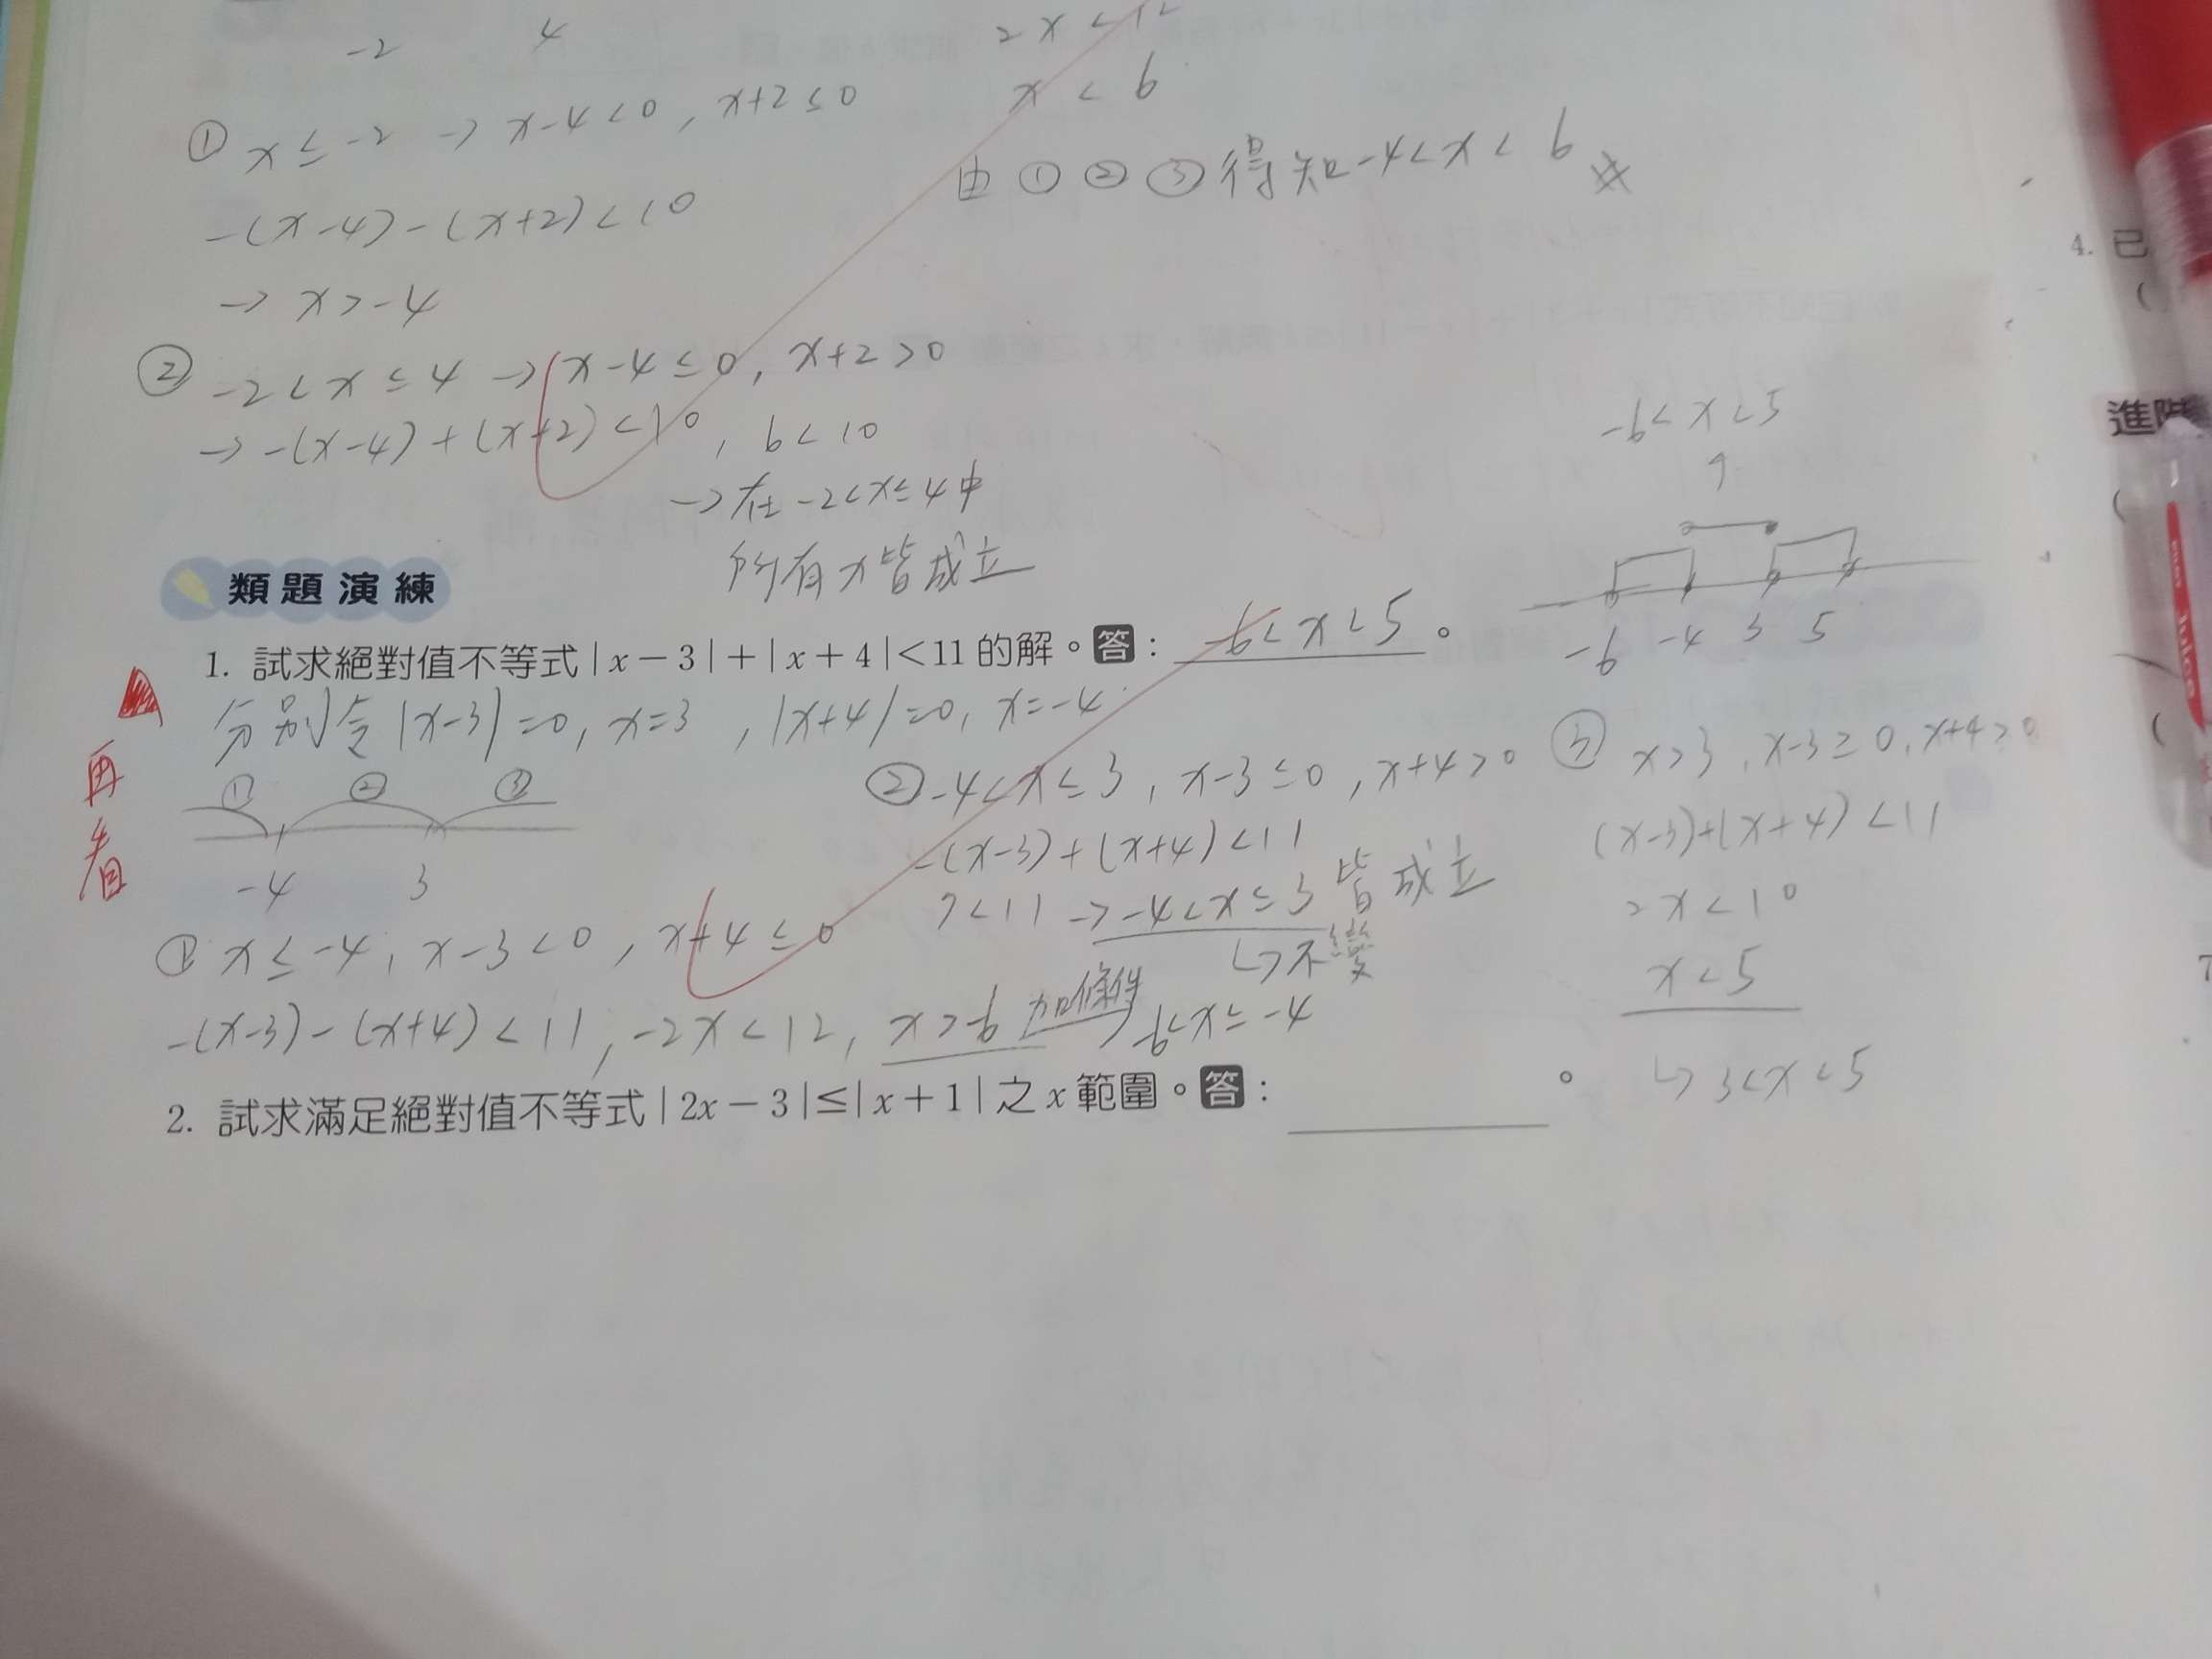 -2 4
① x ≤ -2 → x-4<0, x+2≤0
-(x-4)-(x+2)<10
→ x>-4
② -2<x≤4 → x-4≤0, x+2>0
→ -(x-4)+(x+2)<10, 6<10
→ 在 -2<x≤4中
所有x皆成立
2x<12
x<6
由①②③得知-4<x<6
4. 已
(
進階
(
(
7
類題演練
1. 試求絕對值不等式|x-3|+|x+4|<11的解。答: -6<x<5。
-6<x<5
-6 -4 3 5
再看
分別令|x-3|=0, x=3, |x+4|=0, x=-4
① ② ③
-4 3
① x≤-4, x-3<0, x+4≤0
-(x-3)-(x+4)<11, -2x<12, x>-6 加條件 -6<x≤-4
② -4<x≤3, x-3≤0, x+4>0
-(x-3)+(x+4)<11
7<11 → -4<x≤3皆成立
↳不變
③ x>3, x-3≥0, x+4>0
(x-3)+(x+4)<11
2x<10
x<5
↳ 3<x<5
2. 試求滿足絕對值不等式|2x-3|≤|x+1|之x範圍。答: 。